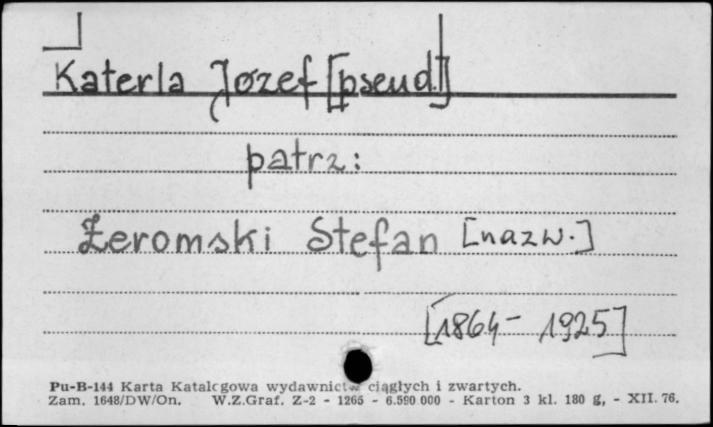 Katerla Józef [pseud.]
patrz:
Żeromski Stefan [nazw.]
[1864 - 1925]
Pu-B-144 Karta Katalogowa wydawnictw ciągłych i zwartych.
Zam. 1648/DW/On. W.Z.Graf. Z-2 - 1265 - 6.590 000 - Karton 3 kl. 180 g, - XII. 76.